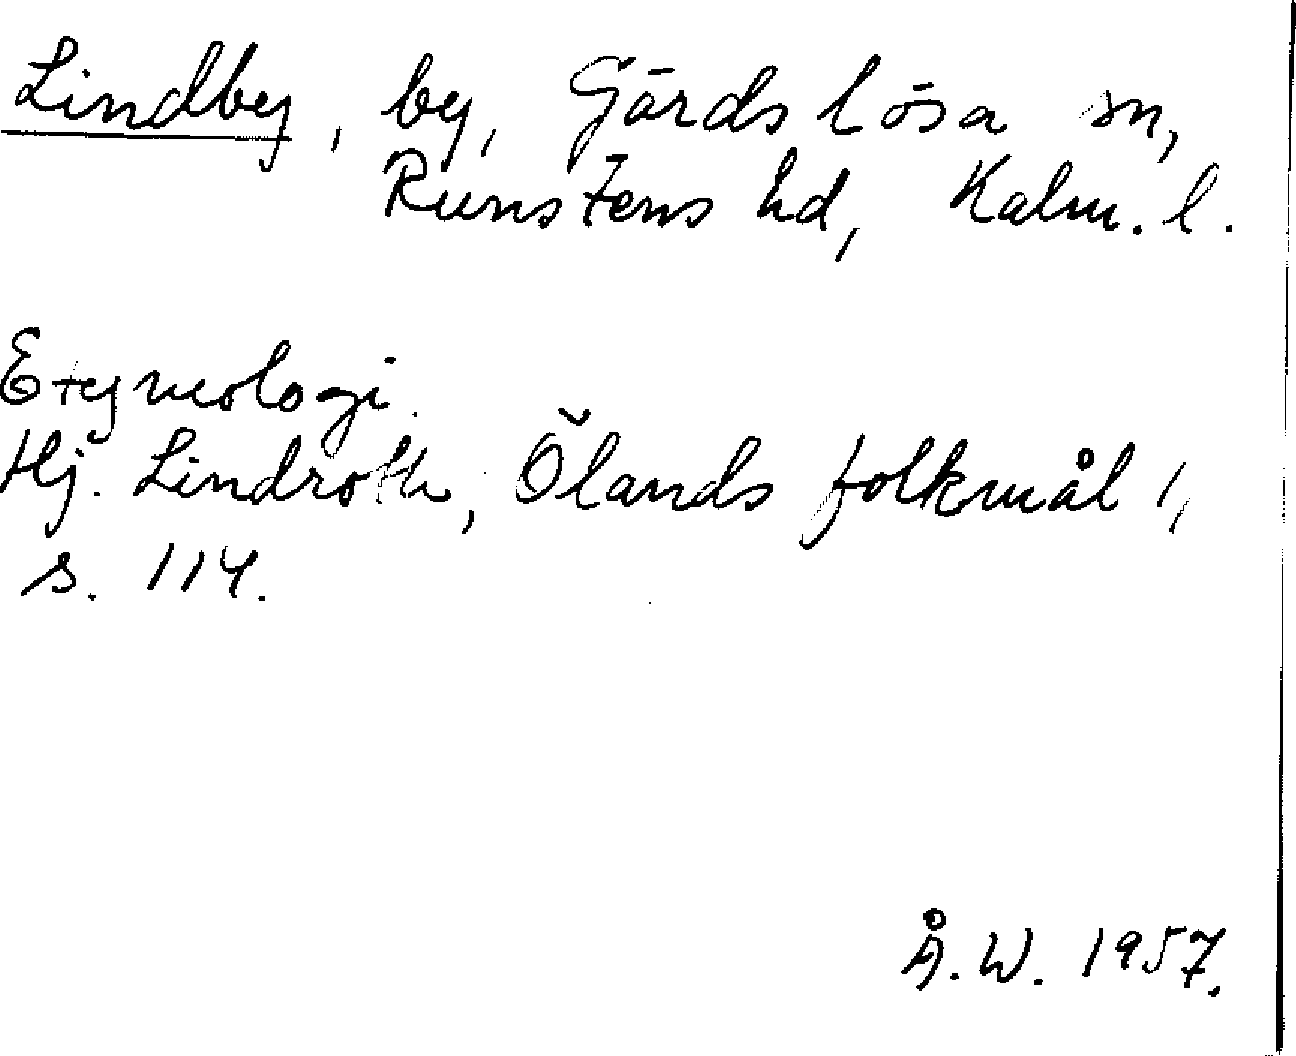 Lindby, by, Gärdslösa sn,
Runstens hd, Kalm. l.
Etymologi.
Hj. Lindroth, Ölands folkmål 1,
s. 114.
Å. W. 1957.